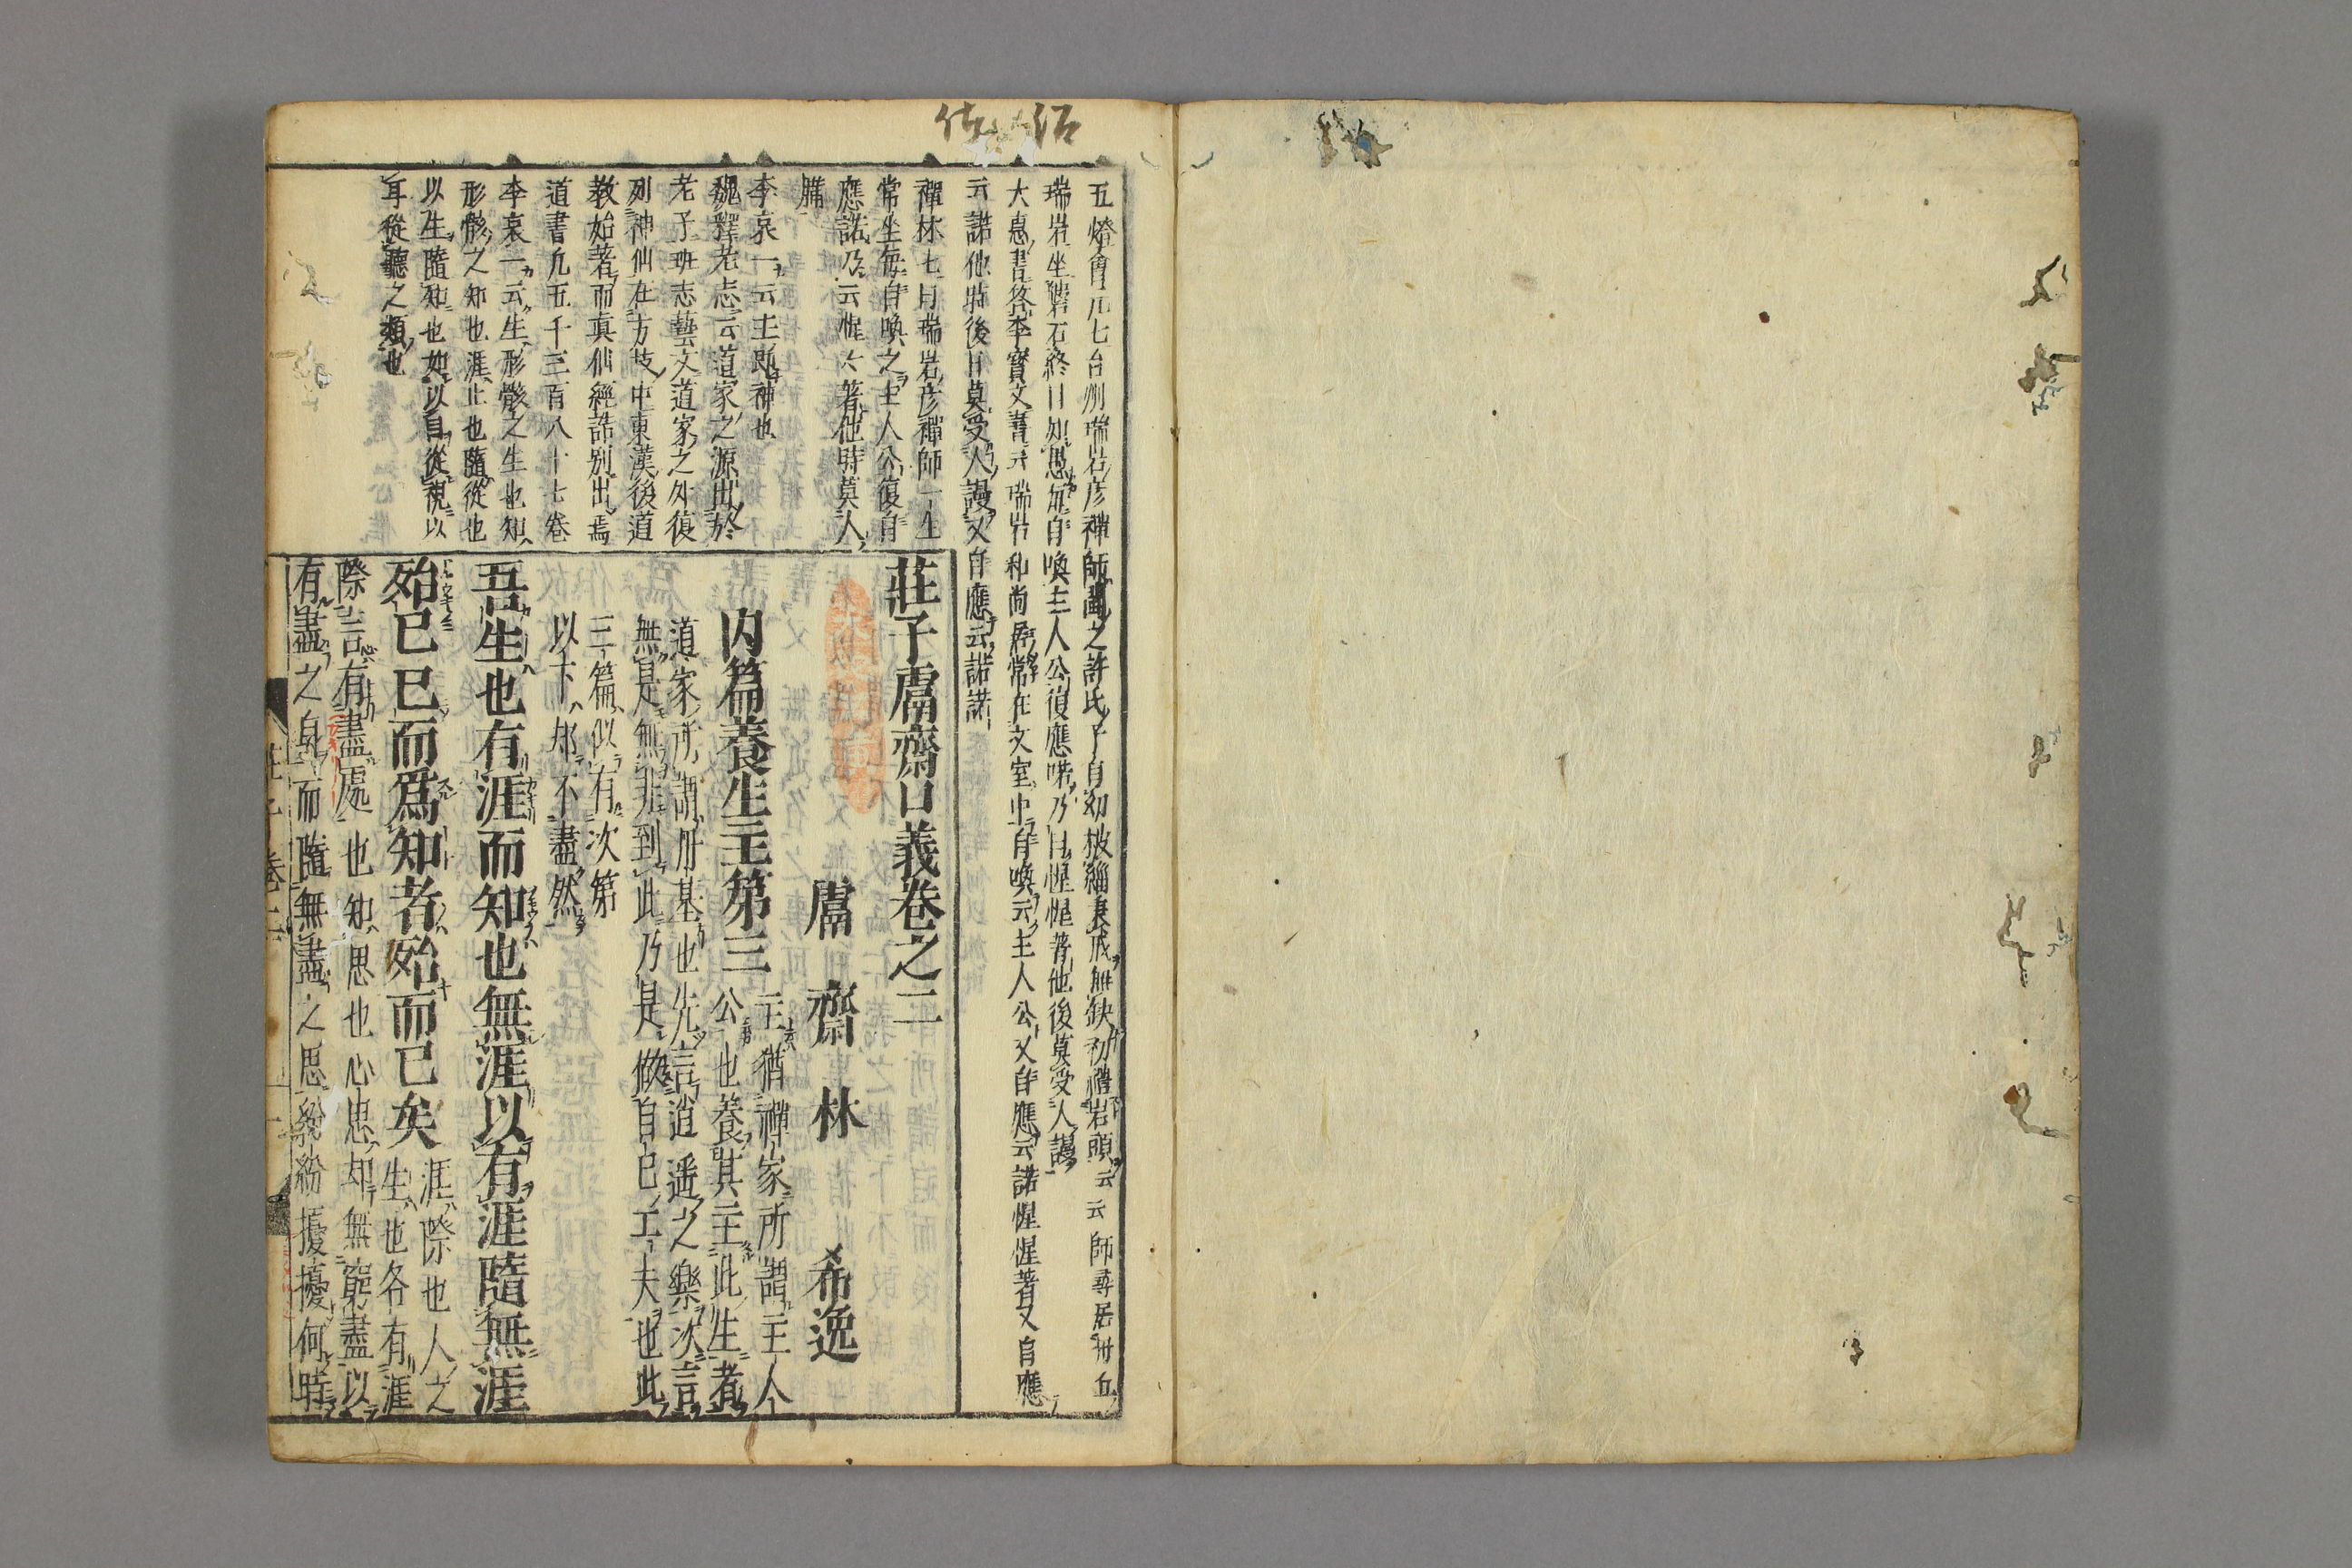 五燈會元七台州瑞岩彦禪師閩之許氏子自幼披緇秉戒無缺初禮岩頭云云師尋居丹丘
瑞岩坐磐石終日如愚毎自喚主人公復應喏乃曰惺惺著他後莫受人謾
大惠書答李寶文書云瑞岩和尚居常在丈室中自喚云主人公又自應云諾惺惺著又自應
云諾他時後日莫受人謾又自應云諾諾
禪林七曰瑞岩彦禪師一生
常坐毎自喚之主人公復自
應諾乃云惺々著他時莫人
購
李哀一云主即神也
魏釋老志云道家之源出於
老子班志藝文道家之外復
列神仙在方技中東漢後道
教始著而真仙經誥別出焉
道書凡五千三百八十七卷
李哀一云生形骸之生也知
形骸之知也涯止也隨從也
以生隨知也如以自從視以
耳從聽之類也
莊子鬳齋口義卷之二
鬳齋林希逸
内篇養生主第三 主猶禪家所謂主人
公也養其主此生者
道家所謂丹基也先言逍遥之樂次言
無是無非到此乃是做自已工夫也此
三篇似有次第
以下却不盡然
吾生也有涯而知也無涯以有涯隨無涯
殆已已而爲知者殆而已矣 涯際也人之
生也各有涯
際言有盡處也知思也心思却無窮盡以
有盡之身而隨無盡之思紛紛擾擾何時
莊子卷二 一